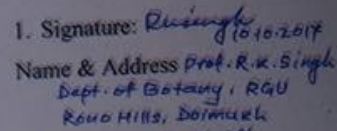 1. Signature: Rksingh 10.10.2017
Name & Address Prof. R.K. Singh
Dept. of Botany, RGU
Rono Hills, Doimukh